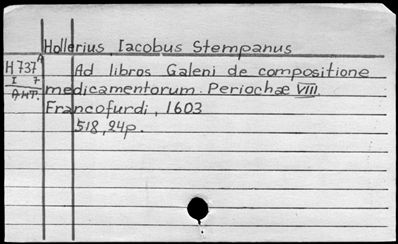 Hollerius, Iacobus Stempanus
H737A Ad libros Galeni de compositione
I 7
ANT. medicamentorum. Periochæ VIII.
Francofurdi, 1603
518, 24p.